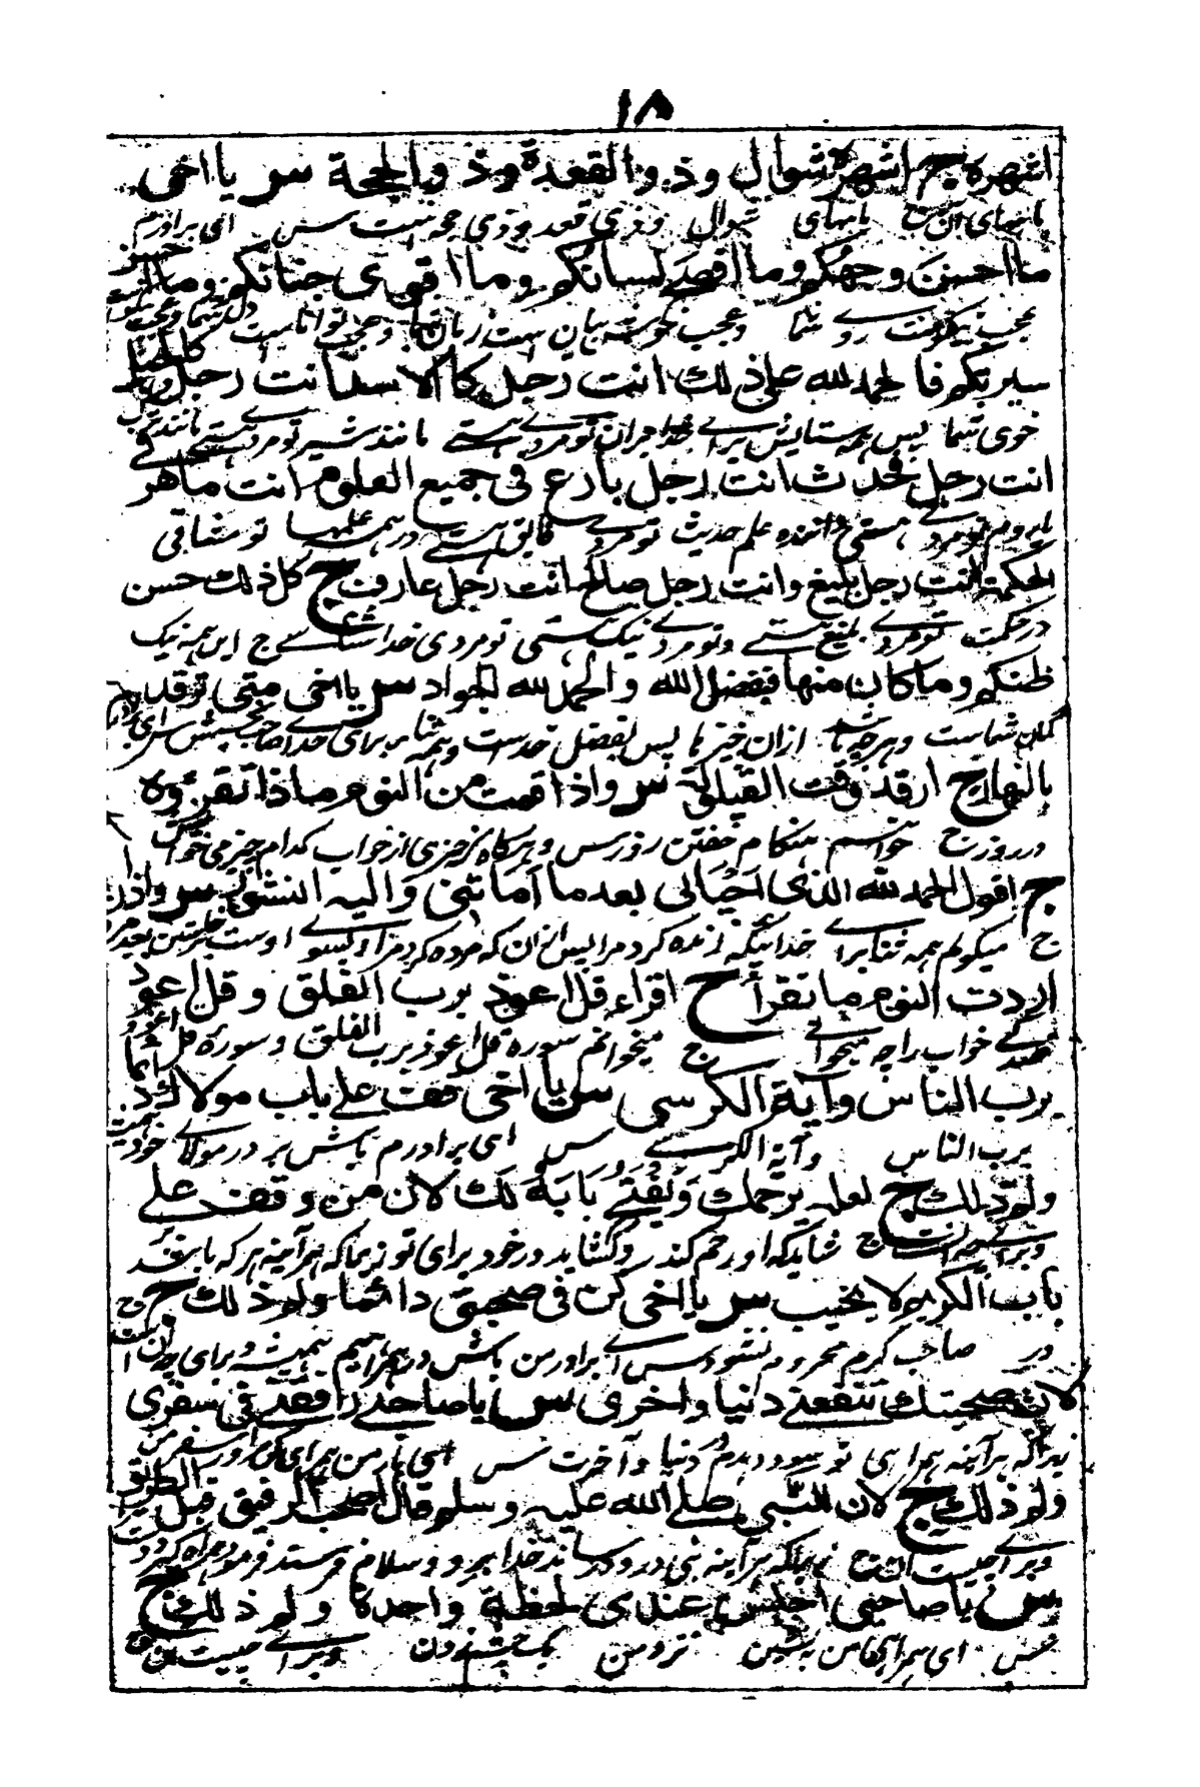 ١٨
اشهره ج اشهره شوال وذو القعدة وذو الحجة س يا اخى
ماههاى آن ج ماههاى شوال وذى قعده وذى حجه است س اى برادرم
ما احسن وجهكم وما افصح لسانكم وما اقوى جنانكم وما احسن
عجب نيكوست روے شما وعجب خوش بيان ست زبان شما وعجب تواناست دل شما
سيرتكم فالحمد لله على ذلك انت رجل كالاسد انت رجل كالجبل
خوى شما پس همه ستايش براے خدا بران تو مردے هستے مانند شير تو مردے هستے مانند
انت رجل محدث انت رجل بارع فى جميع العلوم انت ماهر فے
تو مردے هستى داننده علم حديث تو مردے فائق هستے در همه علمها تو
الحكمة انت رجل بليغ وانت رجل صالح انت رجل عارف ج كل ذلك حسن
در حكمت تو مردے بليغ هستے وتو مردے نيك هستى تو مردى خدا شناسے ج اين همه نيك
ظنكم وما كان منها فبفضل الله والحمد لله الجواد س يا اخى متى ترقد
گمان شماست وهرچه باشد ازان خيرها پس بفضل خداست وهمه ثنا براى خداے صاحب بخشش س اى
بالنهار ج ارقد وقت القيلولة س واذا قمت من النوم ماذا تقرؤه
در روز ج خواب هنگام خفتن روز س وهرگاه برخيزى از خواب كدام چيز مى خوانى
ج اقول الحمد لله الذى احيانى بعد ما اماتنى واليه النشور س واذا
ج ميگويم همه ثنا براے خدائيكه زنده كرد مرا پس ازان كه مرده كرد مرا وبسوے اوست
اردت النوم ما تقرأ ج اقراء قل اعوذ برب الفلق وقل اعوذ
خواب را چه ميخوانے ج ميخوانم سورة قل اعوذ برب الفلق وسورة قل اعوذ
برب الناس وآية الكرسى س يا اخى قف على باب مولاك دائما
برب الناس وآية الكرسے س اى برادرم باش بر در مولاے خود هميشه
ولم ذلك ج لعله يرحمك ويفتح بابه لك لان من وقف على
وبراے چيست ج شايد كه او رحم كند وكشايد در خود براى تو زيرا كه هر آينه هر كه باستد
باب الكريم لا يخيب س يا اخى كن فى صحبتى دائما ولم ذلك ج
در صاحب كرم محروم نشود س اے برادر من باش در همراهيم هميشه وبراى چه
لان صحبتك تنفعنى دنيا واخرى س يا صاحبى رافقنى فى سفرى
زيرا كه هر آينه همراهى تو سود دهدم در دنيا وآخرت س اى يار من همراهى كن مرا در سفر من
ولم ذلك ج لان النبى صلى الله عليه وسلم قال اصحب الرفيق قبل الطريق
وبراے چيست آن ج زيرا كه هر آينه نبى درود رساند خدا برو وسلام فرستد فرمود
س يا صاحبى اجلس عندى لحظة واحدة ولم ذلك ج
س اى همراهى من بنشين نزد من يك چشم زدن وبراے چيست آن ج